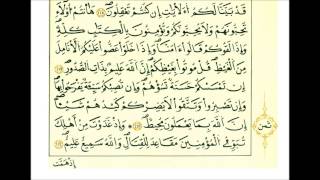 قَدْ بَيَّنَّا لَكُمُ الْآيَاتِ إِن كُنتُمْ تَعْقِلُونَ ۝ هَآنتُمْ أُوْلَآءِ
تُحِبُّونَهُمْ وَلَا يُحِبُّونَكُمْ وَتُؤْمِنُونَ بِالْكِتَابِ كُلِّهِ
وَإِذَا لَقُوكُمْ قَالُوا آمَنَّا وَإِذَا خَلَوْا عَضُّوا عَلَيْكُمُ الْأَنَامِلَ
مِنَ الْغَيْظِ قُلْ مُوتُوا بِغَيْظِكُمْ إِنَّ اللَّهَ عَلِيمٌ بِذَاتِ الصُّدُورِ
إِن تَمْسَسْكُمْ حَسَنَةٌ تَسُؤْهُمْ وَإِن تُصِبْكُمْ سَيِّئَةٌ يَفْرَحُوا بِهَا
وَإِن تَصْبِرُوا وَتَتَّقُوا لَا يَضِرْكُمْ كَيْدُهُمْ شَيْئًا
إِنَّ اللَّهَ بِمَا يَعْمَلُونَ مُحِيطٌ ۝ وَإِذْ غَدَوْتَ مِنْ أَهْلِكَ
ثمن
تُبَوِّئُ الْمُؤْمِنِينَ مَقَاعِدَ لِلْقِتَالِ وَاللَّهُ سَمِيعٌ عَلِيمٌ
إِذْ هَمَّت